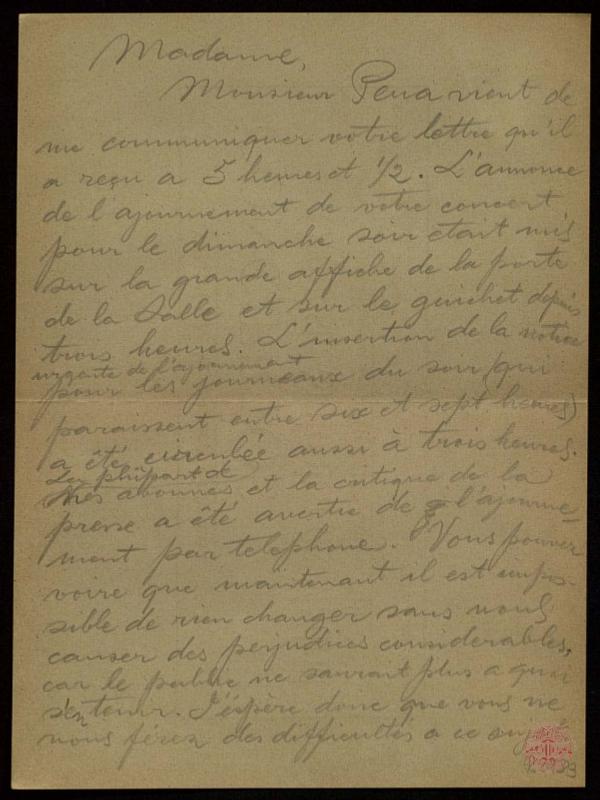 Madame,
Monsieur Pena vient de
me communiquer votre lettre qu'il
a reçu a 5 heures et 1/2. L'annonce
de l'ajournement de votre concert
pour le dimanche soir etait mis
sur la grande affiche de la porte
de la Salle et sur le guichet depuis
trois heures. L'insertion de la notice
urgente de l'ajournement
pour les journeaux du soir (qui
paraissent entre six et sept heures)
a été circulée aussi à trois heures.
La plûpart de
nos abonnés et la critique de la
presse a été avertie de l'ajourne-
ment par telephone. Vous pouvez
voire que maintenant il est impos-
sible de rien changer sans nous
causer des perjudices considerables,
car le public ne saurant plus a quoi
s'en tenir. J'éspère donc que vous ne
nous férez des difficultés a ce sujet